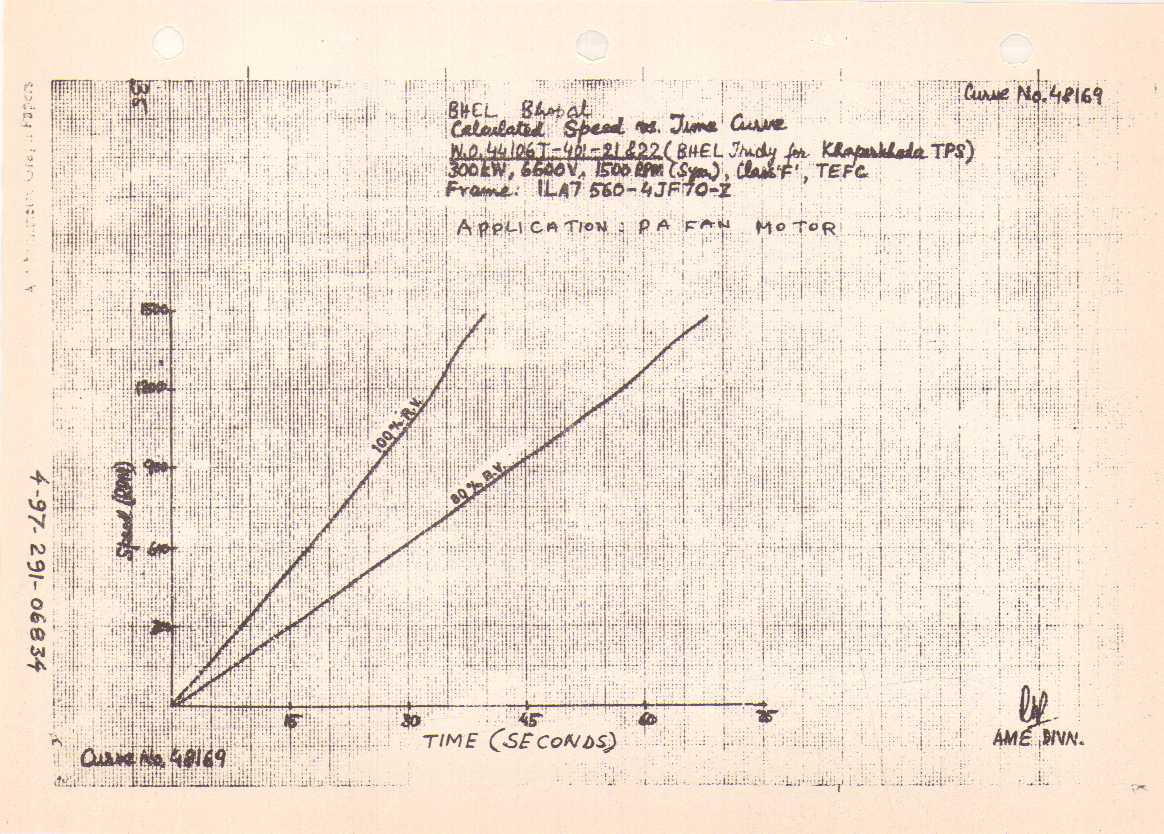 35
Curve No. 48169
BHEL Bhopal
Calculated Speed vs. Time Curve
W.O. 44106T-401-21 & 22 (BHEL Trichy for Khaperkheda TPS)
300 kW, 6600V, 1500 RPM (Syn), Class 'F', TEFC
Frame: 1LA7 560-4JF70-Z
APPLICATION: PA FAN MOTOR
1500
1200
900
600
300
Speed (RPM)
100% R.V.
80% R.V.
15
30
45
60
75
TIME (SECONDS)
4-97-291-06834
Curve No. 48169
AME DIVN.